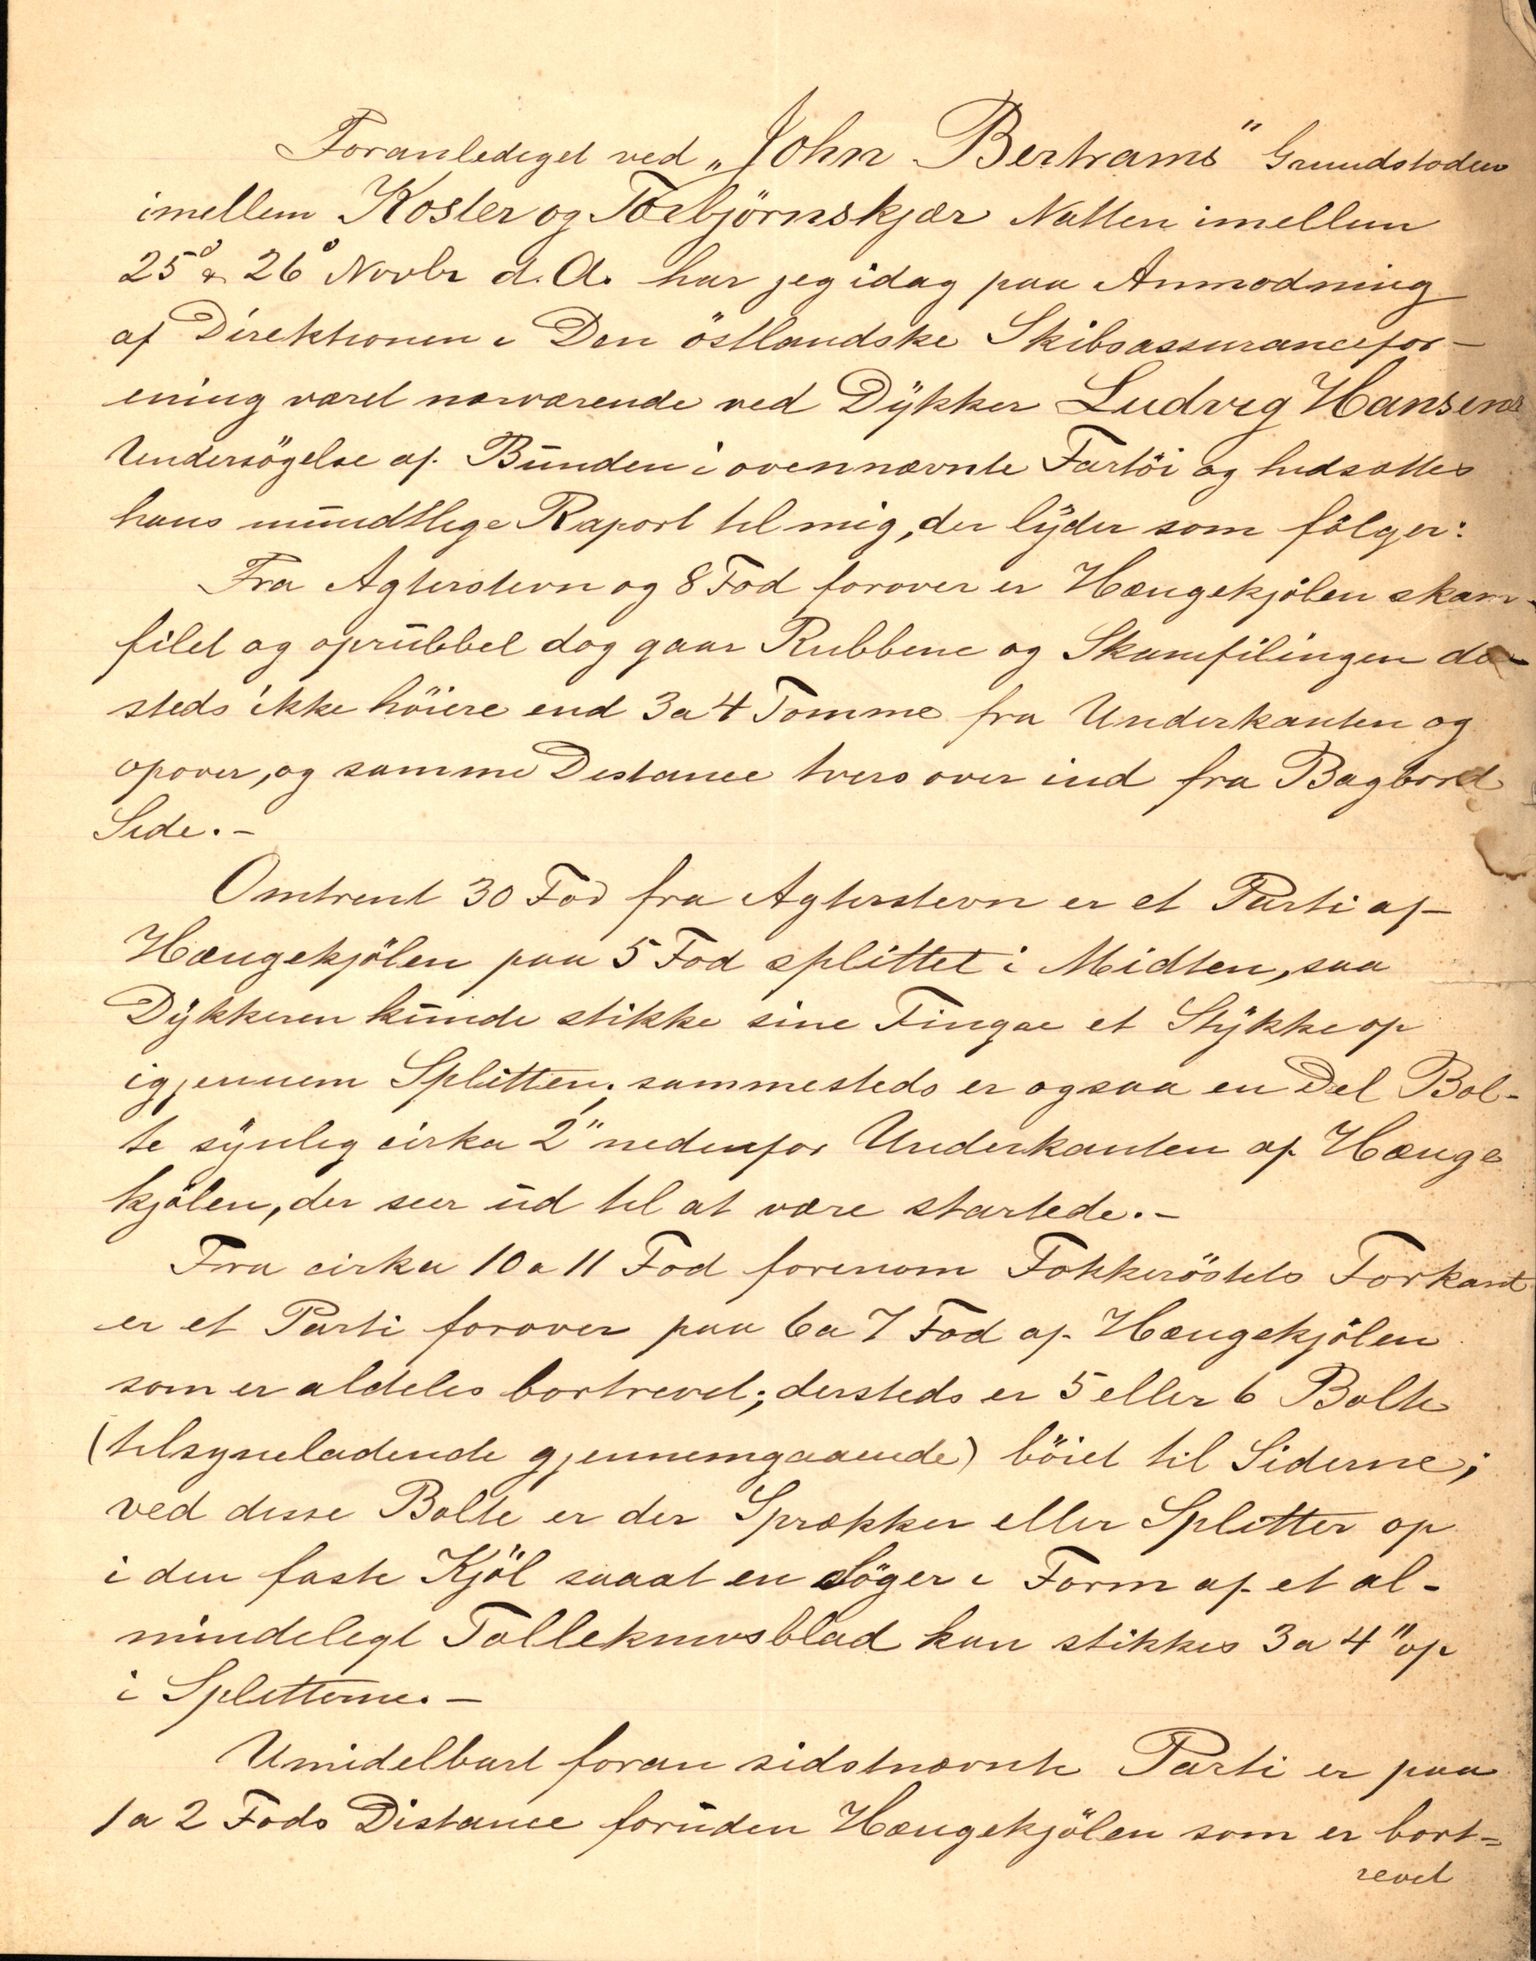 Foranlediget ved „John Bertrams" Grundstöden
imellem Koster og Torbjörnskjær Natten imellem
25de & 26de Novbr d. A. har jeg idag paa Anmodning
af Direktionen i Den östlandske Skibsassurancefor-
ening været nærværende ved Dÿkker Ludvig Hansens
Undersögelse af Bunden i ovennævnte Fartöi og hidsættes
hans mundtlige Raport til mig, der lÿder som fölger:
Fra Agterstevn og 8 Fod forover er Hængekjölen skam-
filet og oprubbet dog gaar Rubbene og Skamfilingen der-
steds ikke höiere end 3 a 4 Tomme fra Underkanten og
opover, og samme Distance tvers over ind fra Bagbord
Side.-
Omtrent 30 Fod fra Agterstevn er et Parti af
Hængekjölen paa 5 Fod splittet i Midten, saa
Dÿkkeren kunde stikke sine Fingre et Stÿkke op
igjennem Splitten; sammesteds er ogsaa en Del Bol-
te sÿnlig cirka 2" nedenfor Underkanten af Hænge
kjölen, der seer ud til at være startede.-
Fra cirka 10 a 11 Fod forenom Fokkeröstets Forkant
er et Parti forover paa 6 a 7 Fod af Hængekjölen
som er aldeles bortrevet; dersteds er 5 eller 6 Bolte
(tilsyneladende gjennemgaaende) böiet til Siderne;
ved disse Bolte er der Sprækker eller Splitter op
i den faste Kjöl saaat en Söger i Form af et al-
mindeligt Tolleknivsblad kan stikkes 3 a 4" op
i Splitterne.-
Umidelbart foran sidstnævnte Parti er paa
1 a 2 Fods Distance foruden Hængekjölen som er bort=
revet